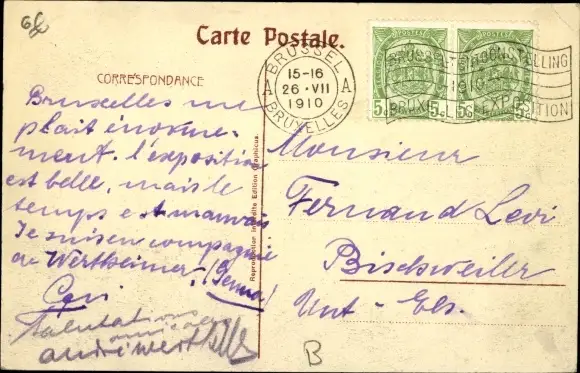 Carte Postale.
CORRESPONDANCE
BRUSSEL
15-16
26 · VII
1910
BRUXELLES
A A
TENTOONSTELLING
1910
BRUXELLES-EXPOSITION
5c 5c 5c 5c
Bruxelles me
plait énormé-
ment. l'exposition
est belle, mais le
temps est mauvais
Je suis en compagnie
de Wertheimer.
Salutations
Reproduction interdite Edition Graphicus.
Monsieur
Fernand Levi
Bischweiler
Unt-Els.
B